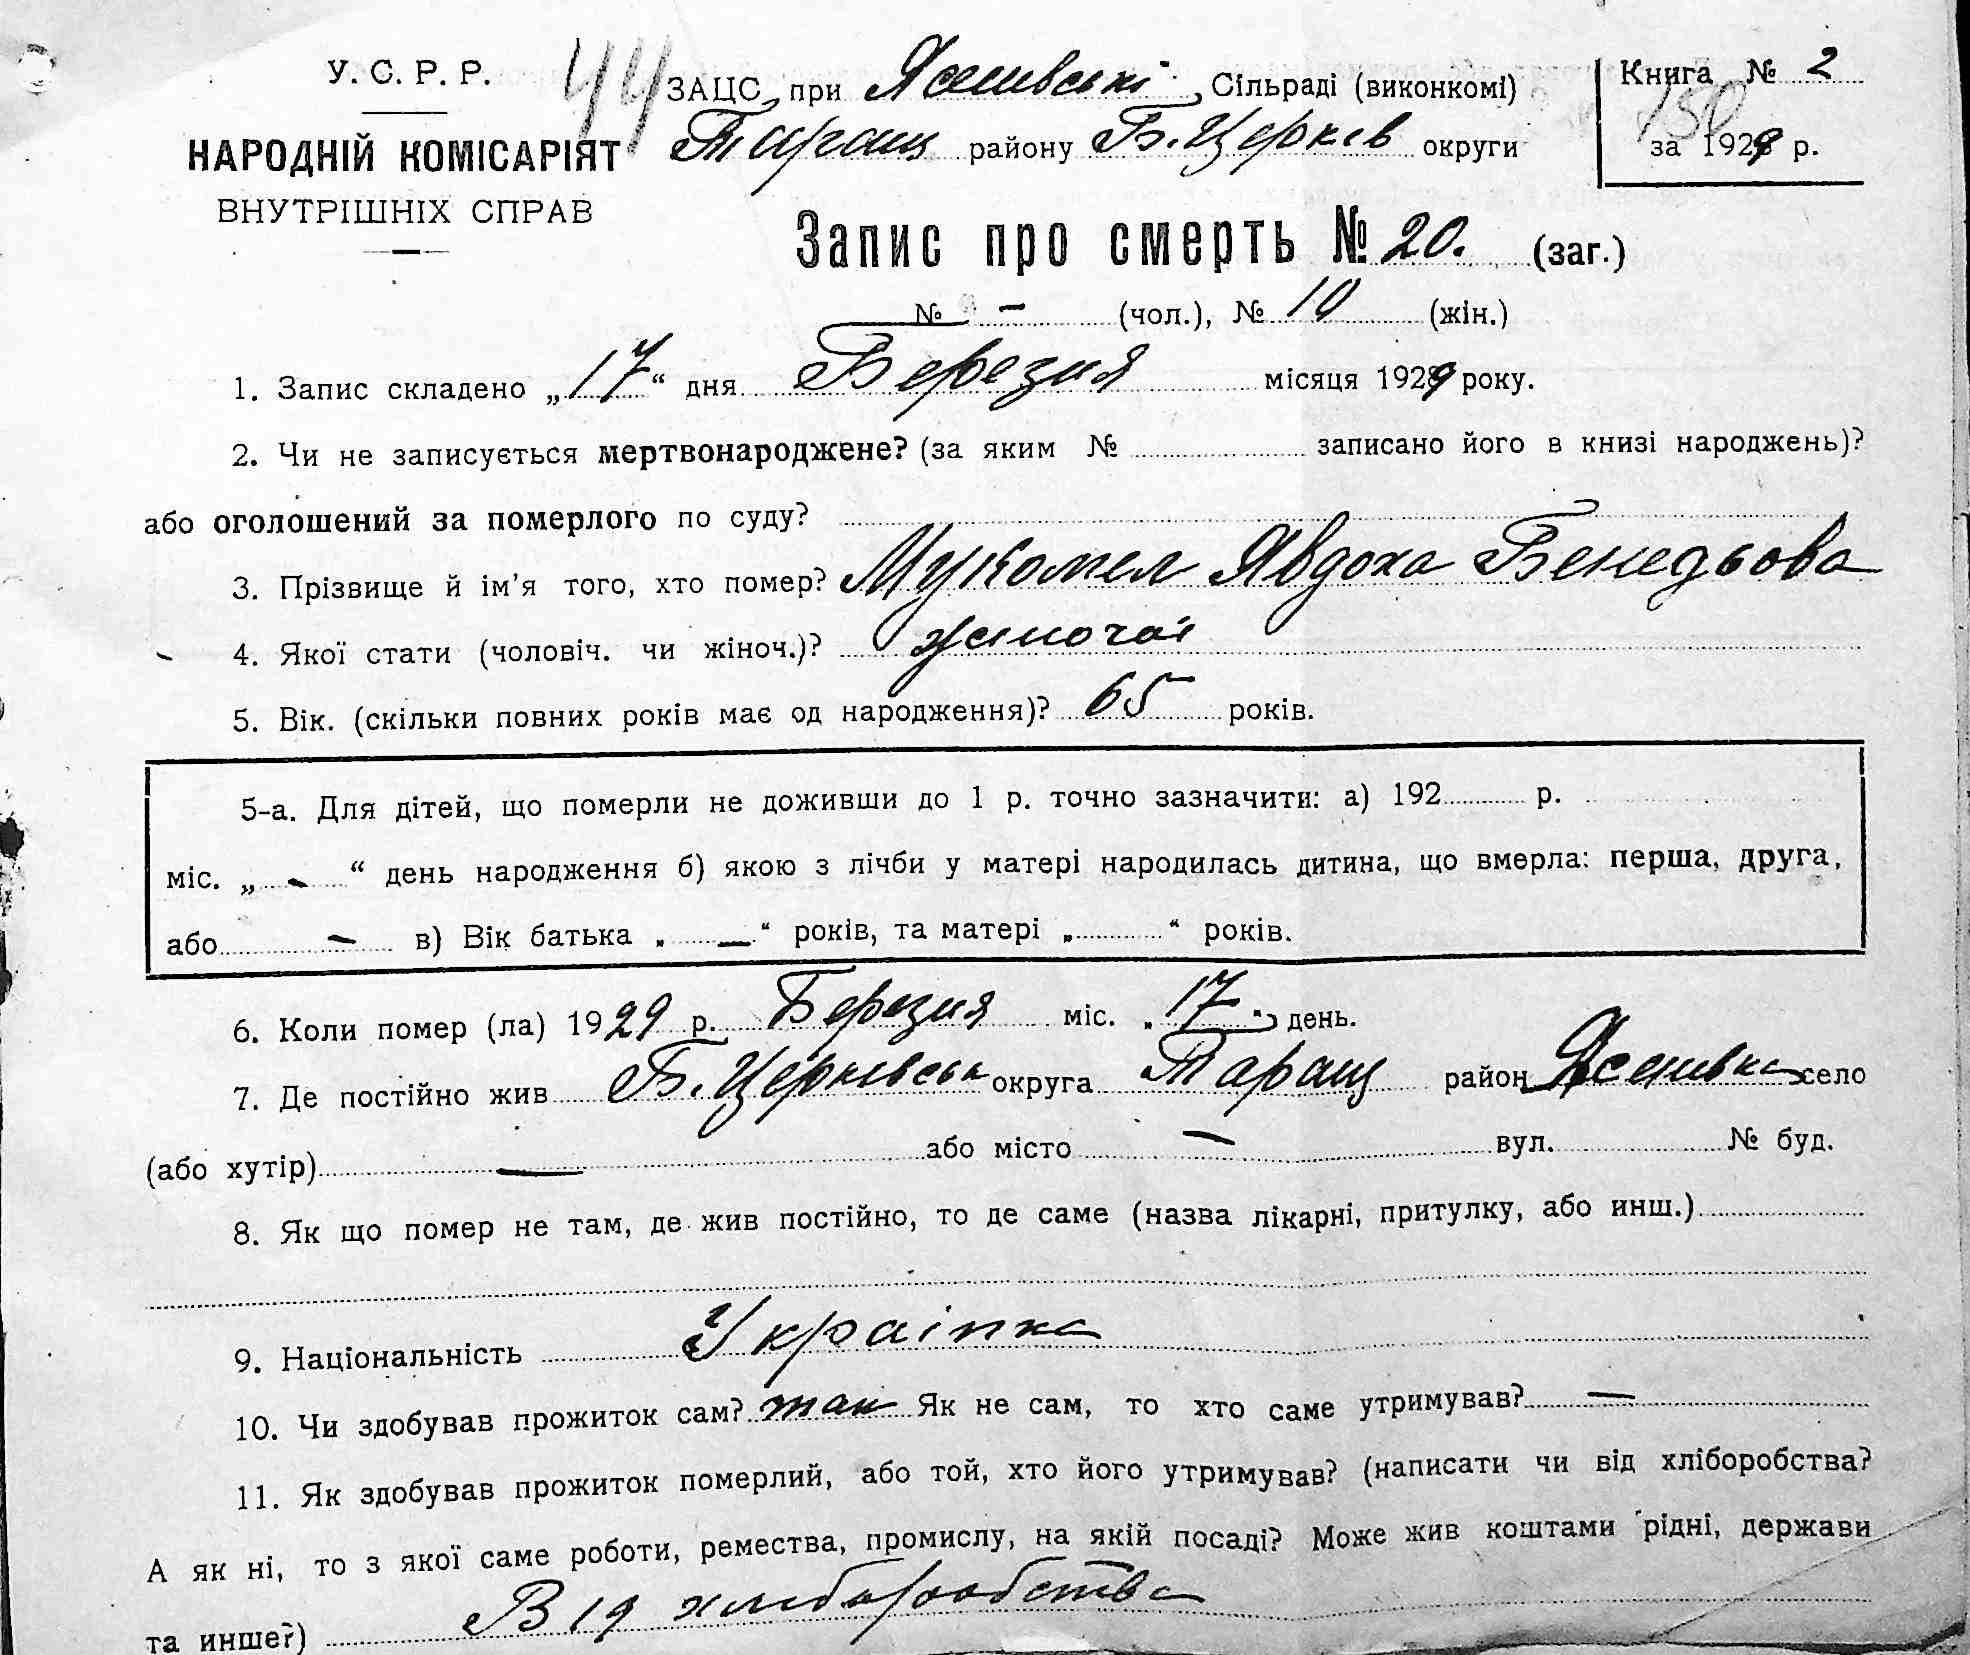 У. С. Р. Р.
44
ЗАЦС при Ясенівські Сільраді (виконкомі)
Книга № 2
150
НАРОДНІЙ КОМІСАРІЯТ
Таращ району Б.Церків округи
за 1929 р.
ВНУТРІШНІХ СПРАВ
Запис про смерть № 20. (заг.)
№ - (чол.), № 10 (жін.)
1. Запис складено „17“ дня Березня місяця 1929 року.
2. Чи не записується мертвонароджене? (за яким № записано його в книзі народжень)?
або оголошений за померлого по суду?
3. Прізвище й ім’я того, хто помер? Мукомел Явдоха Бенедьова
4. Якої стати (чоловіч. чи жіноч.)? жіночої
5. Вік. (скільки повних років має од народження)? 65 років.
5-а. Для дітей, що померли не доживши до 1 р. точно зазначити: а) 192 р.
міс. „ - “ день народження б) якою з лічби у матері народилась дитина, що вмерла: перша, друга,
або - в) Вік батька „ — “ років, та матері „ “ років.
6. Коли помер (ла) 1929 р. Березня міс. „17“ день.
7. Де постійно жив Б.Церківськ округа Таращ район Ясенівка село
(або хутір) — або місто — вул. № буд.
8. Як що помер не там, де жив постійно, то де саме (назва лікарні, притулку, або инш.)
9. Національність Українка
10. Чи здобував прожиток сам? так Як не сам, то хто саме утримував? —
11. Як здобував прожиток померлий, або той, хто його утримував? (написати чи від хліборобства?
А як ні, то з якої саме роботи, ремества, промислу, на якій посаді? Може жив коштами рідні, держави
та инше?) Від хліборобства